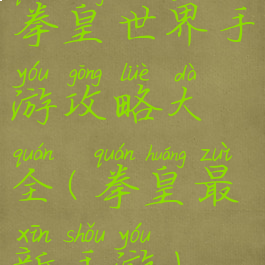 拳皇世界手
yóu gōng lüè dà
游攻略大
quán quán huáng zuì
全(拳皇最
xīn shǒu yóu
新手游)